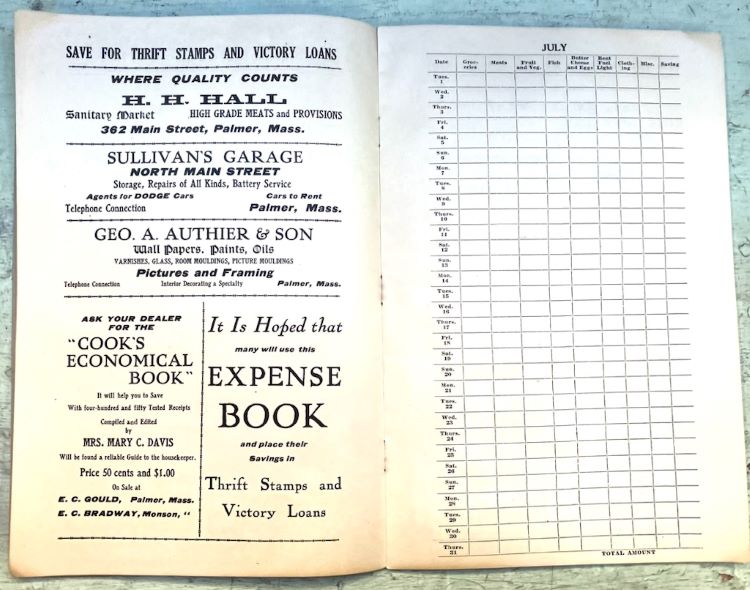 SAVE FOR THRIFT STAMPS AND VICTORY LOANS
WHERE QUALITY COUNTS
H. H. HALL
Sanitary Market HIGH GRADE MEATS and PROVISIONS
362 Main Street, Palmer, Mass.
SULLIVAN'S GARAGE
NORTH MAIN STREET
Storage, Repairs of All Kinds, Battery Service
Agents for DODGE Cars Cars to Rent
Telephone Connection Palmer, Mass.
GEO. A. AUTHIER & SON
Wall Papers, Paints, Oils
VARNISHES, GLASS, ROOM MOULDINGS, PICTURE MOULDINGS
Pictures and Framing
Telephone Connection Interior Decorating a Specialty Palmer, Mass.
ASK YOUR DEALER
FOR THE
"COOK'S
ECONOMICAL
BOOK"
It will help you to Save
With four-hundred and fifty Tested Receipts
Compiled and Edited
by
MRS. MARY C. DAVIS
Will be found a reliable Guide to the housekeeper.
Price 50 cents and $1.00
On Sale at
E. C. GOULD, Palmer, Mass.
E. C. BRADWAY, Monson, "
It Is Hoped that
many will use this
EXPENSE
BOOK
and place their
Savings in
Thrift Stamps and
Victory Loans
JULY
Date Groc-eries Meats Fruit and Veg. Fish Butter Cheese and Eggs Rent Fuel Light Cloth-ing Misc. Saving
Tues. 1
Wed. 2
Thurs. 3
Fri. 4
Sat. 5
Sun. 6
Mon. 7
Tues. 8
Wed. 9
Thurs. 10
Fri. 11
Sat. 12
Sun. 13
Mon. 14
Tues. 15
Wed. 16
Thurs. 17
Fri. 18
Sat. 19
Sun. 20
Mon. 21
Tues. 22
Wed. 23
Thurs. 24
Fri. 25
Sat. 26
Sun. 27
Mon. 28
Tues. 29
Wed. 30
Thurs. 31
TOTAL AMOUNT